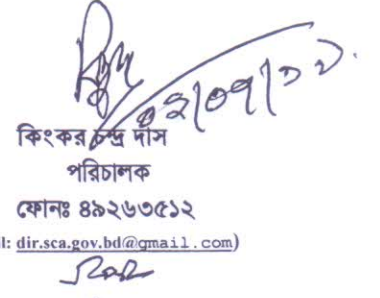 ০২/০৭/১২
কিংকর চন্দ্র দাস
পরিচালক
ফোনঃ ৪৯২৬৩৫১২
il: dir.sca.gov.bd@gmail.com)